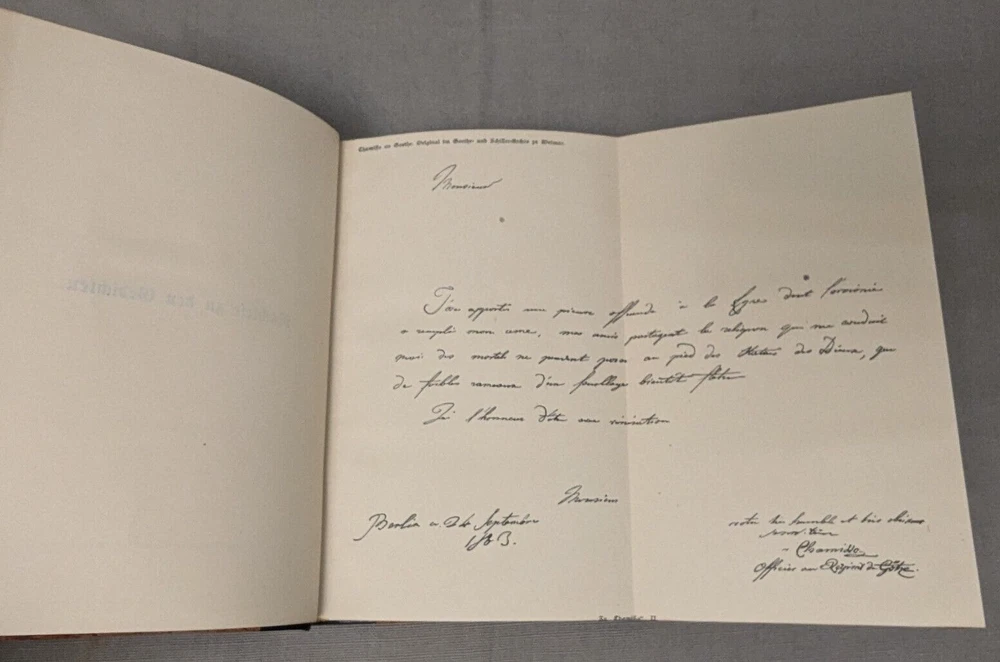 Chamisso an Goethe. Original im Goethe- und Schiller-Archiv zu Weimar.
Monsieur
J'ose apporter une pieuse offrande à la Egres dont l'ororiónie
a rempli mon ame, mes amis partagent la religion qui me conduit
mais des mortels ne peuvent poser au pied des Statues des Dieux, que
de faibles rameaux d'un feuillage bientot flétri
J'ai l'honneur d'être avec vénération
Monsieur
Berlin 24 Septembre
1803.
votre très humble et très obéissant
serviteur
Chamisso
Officier au Régiment de Götze.